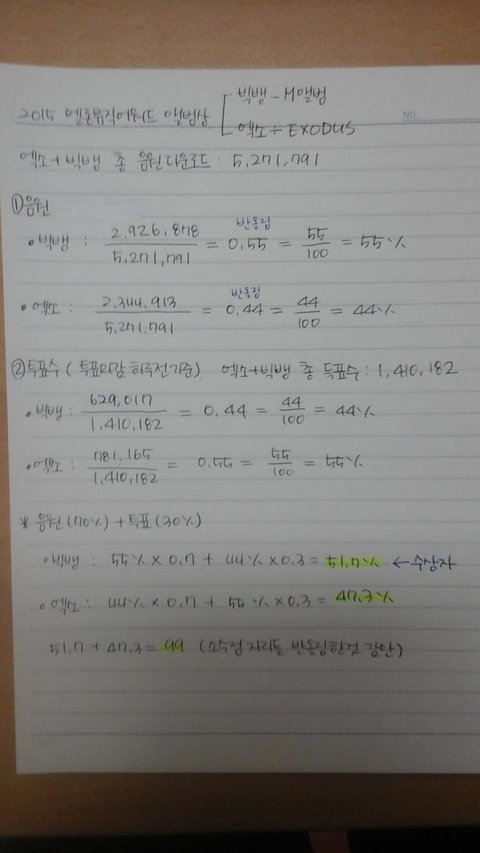 2015 멜론뮤직어워드 앨범상
빅뱅 - M앨범
엑소 - EXODUS
NO.
엑소 + 빅뱅 총 음원다운로드 : 5,271,791
①음원
• 빅뱅 : 2,926,878 / 5,271,791 = 0.55 = 55/100 = 55%
반올림
• 엑소 : 2,344,913 / 5,271,791 = 0.44 = 44/100 = 44%
반올림
②투표수 ( 투표마감 하루전 기준 ) 엑소+빅뱅 총 득표수 : 1,410,182
• 빅뱅 : 629,017 / 1,410,182 = 0.44 = 44/100 = 44%
• 엑소 : 781,165 / 1,410,182 = 0.55 = 55/100 = 55%
* 음원(70%) + 투표(30%)
• 빅뱅 : 55% × 0.7 + 44% × 0.3 = 51.7% ← 수상자
• 엑소 : 44% × 0.7 + 55% × 0.3 = 47.3%
51.7 + 47.3 = 99 (소수점 자리를 반올림한것 감안)